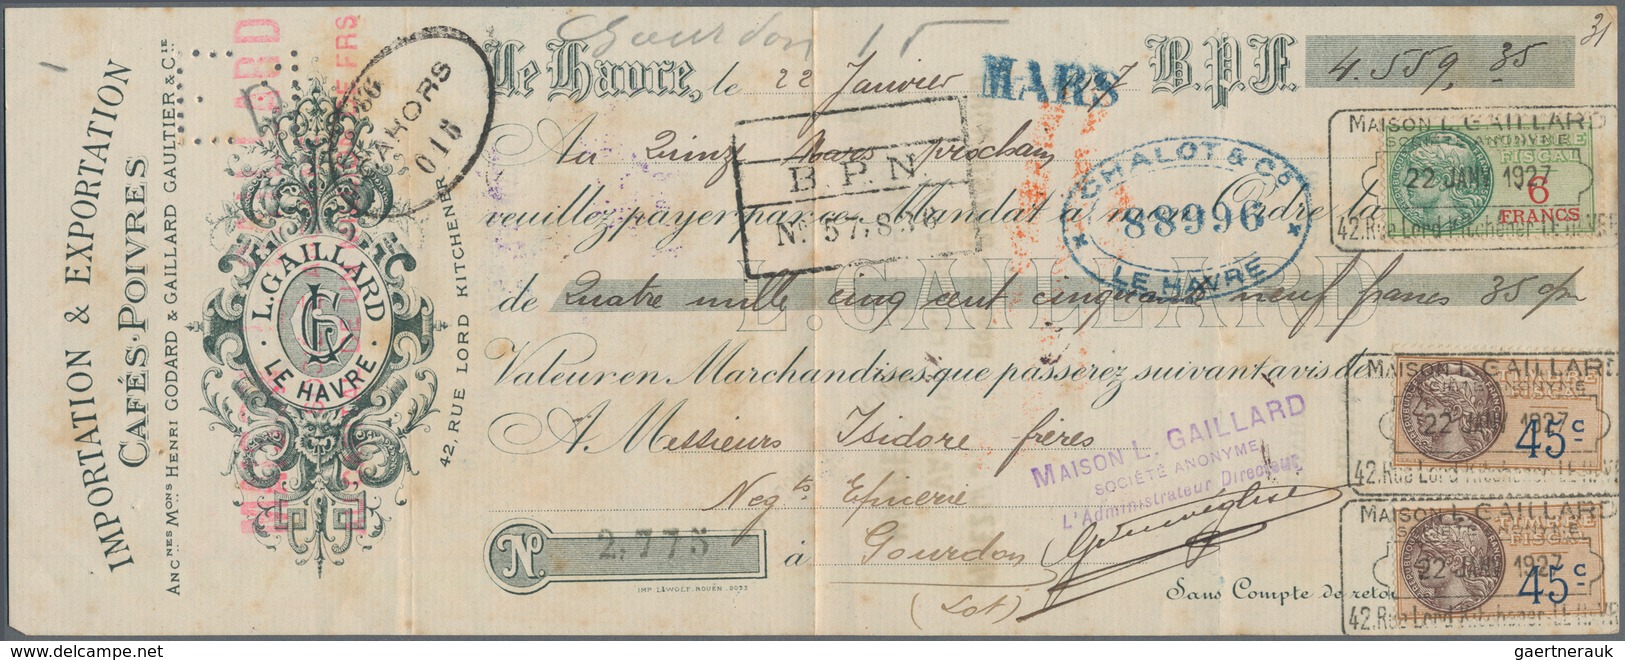 IMPORTATION & EXPORTATION
CAFÉS-POIVRES
ANC.NES MONS HENRI GODARD & GAILLARD GAULTIER & CIE
L. GAILLARD
LE HAVRE
42, RUE LORD KITCHENER
CAHORS
Gourdon 15
Le Havre, le 22 Janvier 1927 B.P.F. 4.559,35
31
MARS
Au Quinze Mars prochain
B.P.N
No 57,838
CHALOT & Co
88996
LE HAVRE
veuillez payer par ce Mandat à mon Ordre la
de Quatre mille cinq cent cinquante neuf francs 35
L. GAILLARD
Valeur en Marchandises, que passerez suivant avis de
A Messieurs Isidore frères
Negts Epicerie
MAISON L. GAILLARD
SOCIÉTÉ ANONYME
L'Administrateur Directeur
No. 2,775
à Gourdon
(Lot)
IMP. L. WOLF. ROUEN. 2033
Sans Compte de
MAISON L. GAILLARD
SOCIÉTÉ ANONYME
FISCAL
22 JANV 1927
6
FRANCS
42, Rue Lord Kitchener LE HAVRE
MAISON L. GAILLARD
SOCIÉTÉ ANONYME
22 JANV 1927
45 c
42, Rue Lord Kitchener LE HAVRE
MAISON L. GAILLARD
FISCAL
22 JANV 1927
45 c
42, Rue Lord Kitchener LE HAVRE
delcampe.net
gaertnerauk